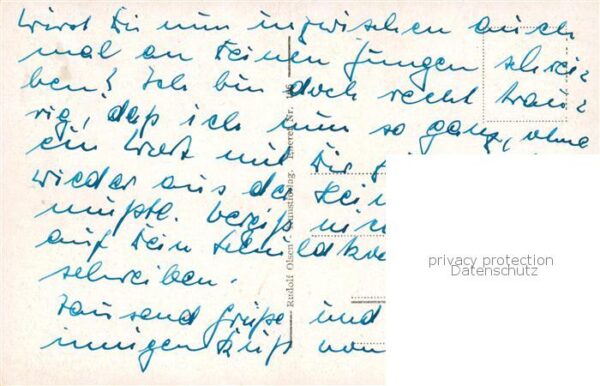 wirst Du nun inzwischen auch
mal an Deinen Jungen schrei-
ben? Ich bin doch recht trau-
rig, daß ich nun so ganz, ohne
ein Wort mit Dir
wieder aus der Hei
mußte. Vergiß nic
auf Dein
schreiben.
Tausend Grüße und
innigen Kuß von
Rudolf Olsen, Kunstverlag.
privacy protection
Datenschutz